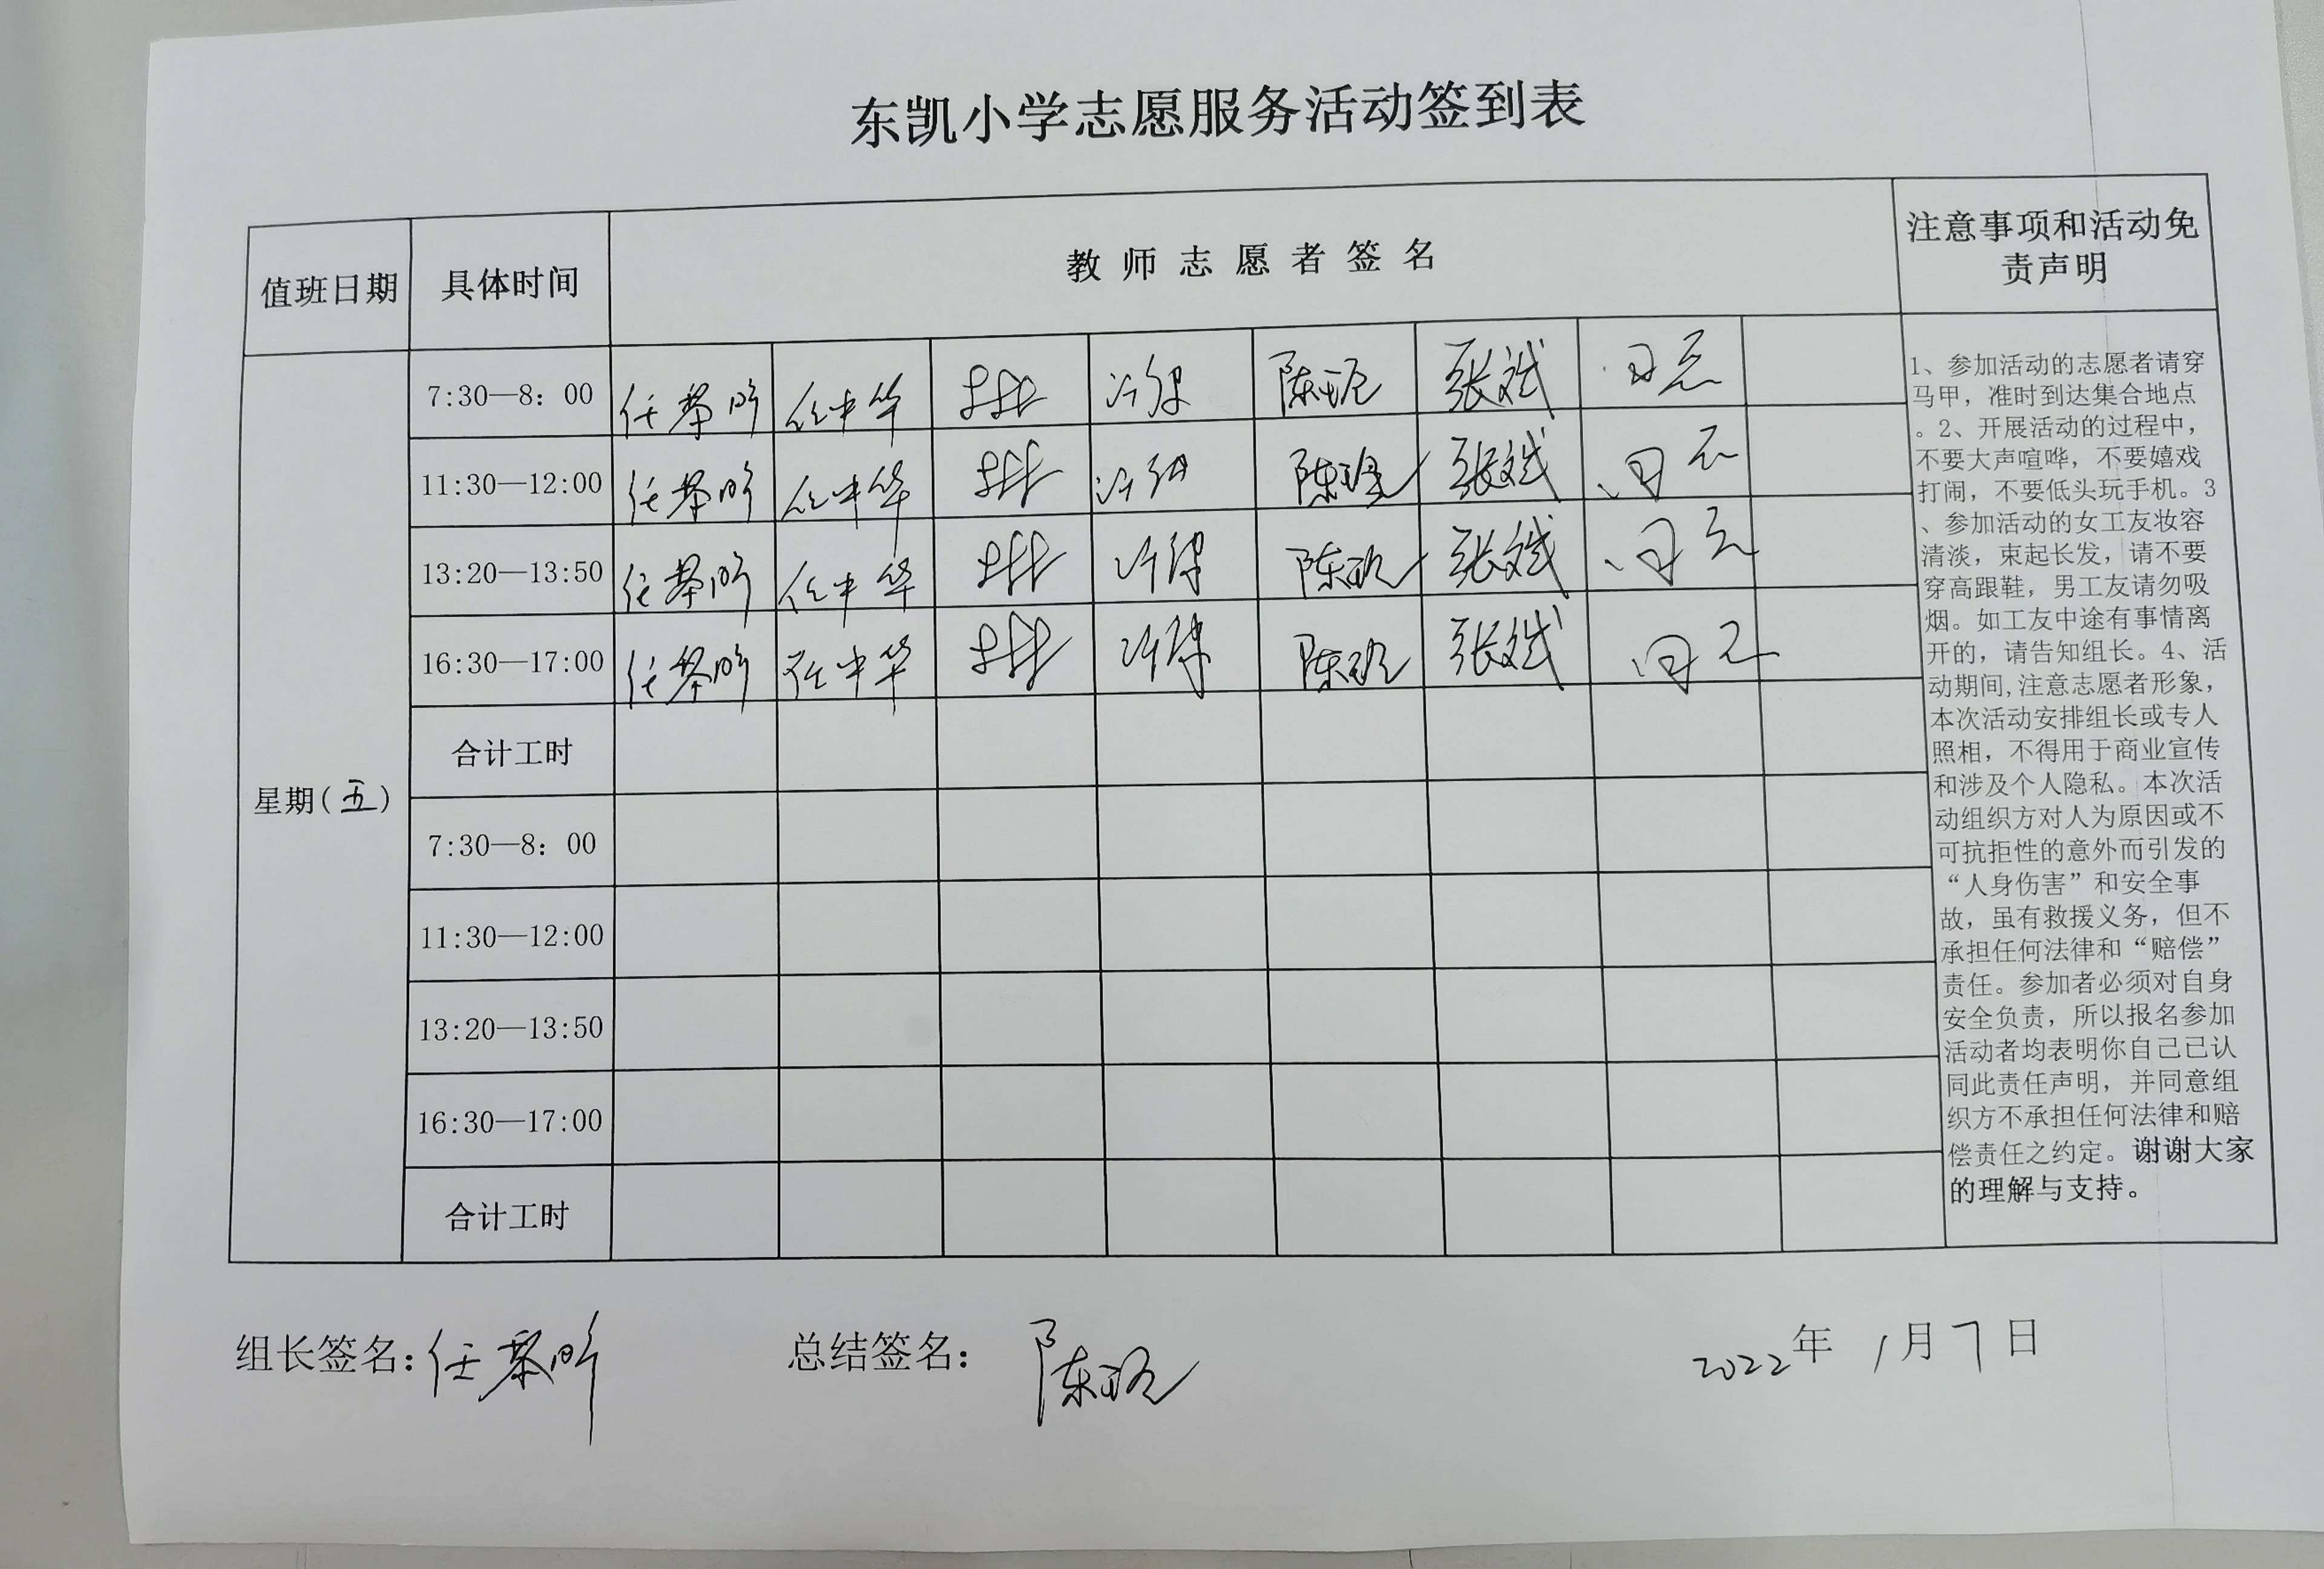 东凯小学志愿服务活动签到表
值班日期 具体时间 教师志愿者签名 注意事项和活动免
责声明
7:30—8：00 任 任中华 陈 张斌
11:30—12:00 任 任中华 陈 张斌
13:20—13:50 任 任中华 陈 张斌
16:30—17:00 任 任中华 陈 张斌
合计工时
星期(五)
7:30—8：00
11:30—12:00
13:20—13:50
16:30—17:00
合计工时
1、参加活动的志愿者请穿
马甲，准时到达集合地点
。2、开展活动的过程中，
不要大声喧哗，不要嬉戏
打闹，不要低头玩手机。3
、参加活动的女工友妆容
清淡，束起长发，请不要
穿高跟鞋，男工友请勿吸
烟。如工友中途有事情离
开的，请告知组长。4、活
动期间,注意志愿者形象，
本次活动安排组长或专人
照相，不得用于商业宣传
和涉及个人隐私。本次活
动组织方对人为原因或不
可抗拒性的意外而引发的
“人身伤害”和安全事
故，虽有救援义务，但不
承担任何法律和“赔偿”
责任。参加者必须对自身
安全负责，所以报名参加
活动者均表明你自己已认
同此责任声明，并同意组
织方不承担任何法律和赔
偿责任之约定。谢谢大家
的理解与支持。
组长签名：任 总结签名：陈 2022年1月7日